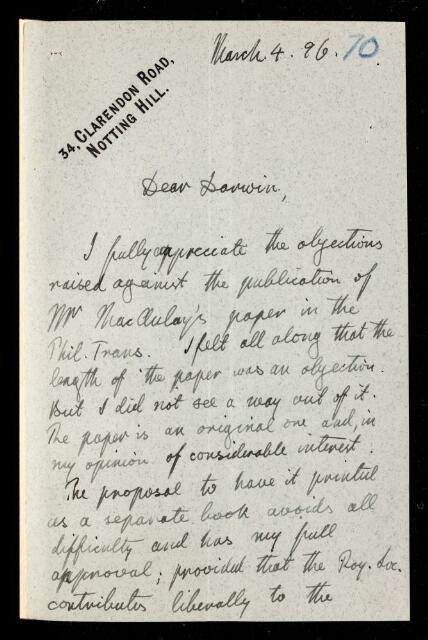 March 4. 96. 70
34, CLARENDON ROAD,
NOTTING HILL.
Dear Darwin,
I fully appreciate the objections
raised against the publication of
Mr MacAulay's paper in the
Phil. Trans. I felt all along that the
length of the paper was an objection.
But I did not see a way out of it.
The paper is an original one and, in
my opinion of considerable interest.
The proposal to have it printed
as a separate book avoids all
difficulty and has my full
approval; provided that the Roy. Soc.
contributes liberally to the